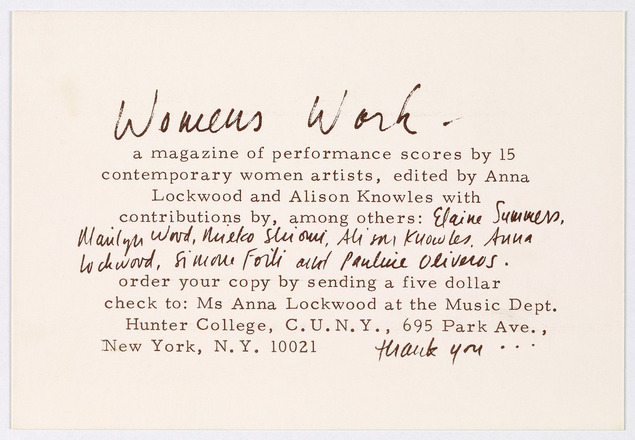 Womens Work -
a magazine of performance scores by 15
contemporary women artists, edited by Anna
Lockwood and Alison Knowles with
contributions by, among others: Elaine Summers,
Marilyn Wood, Mieko Shiomi, Alison Knowles, Anna
Lockwood, Simone Forti and Pauline Oliveros.
order your copy by sending a five dollar
check to: Ms Anna Lockwood at the Music Dept.
Hunter College, C.U.N.Y., 695 Park Ave.,
New York, N.Y. 10021 thank you ...